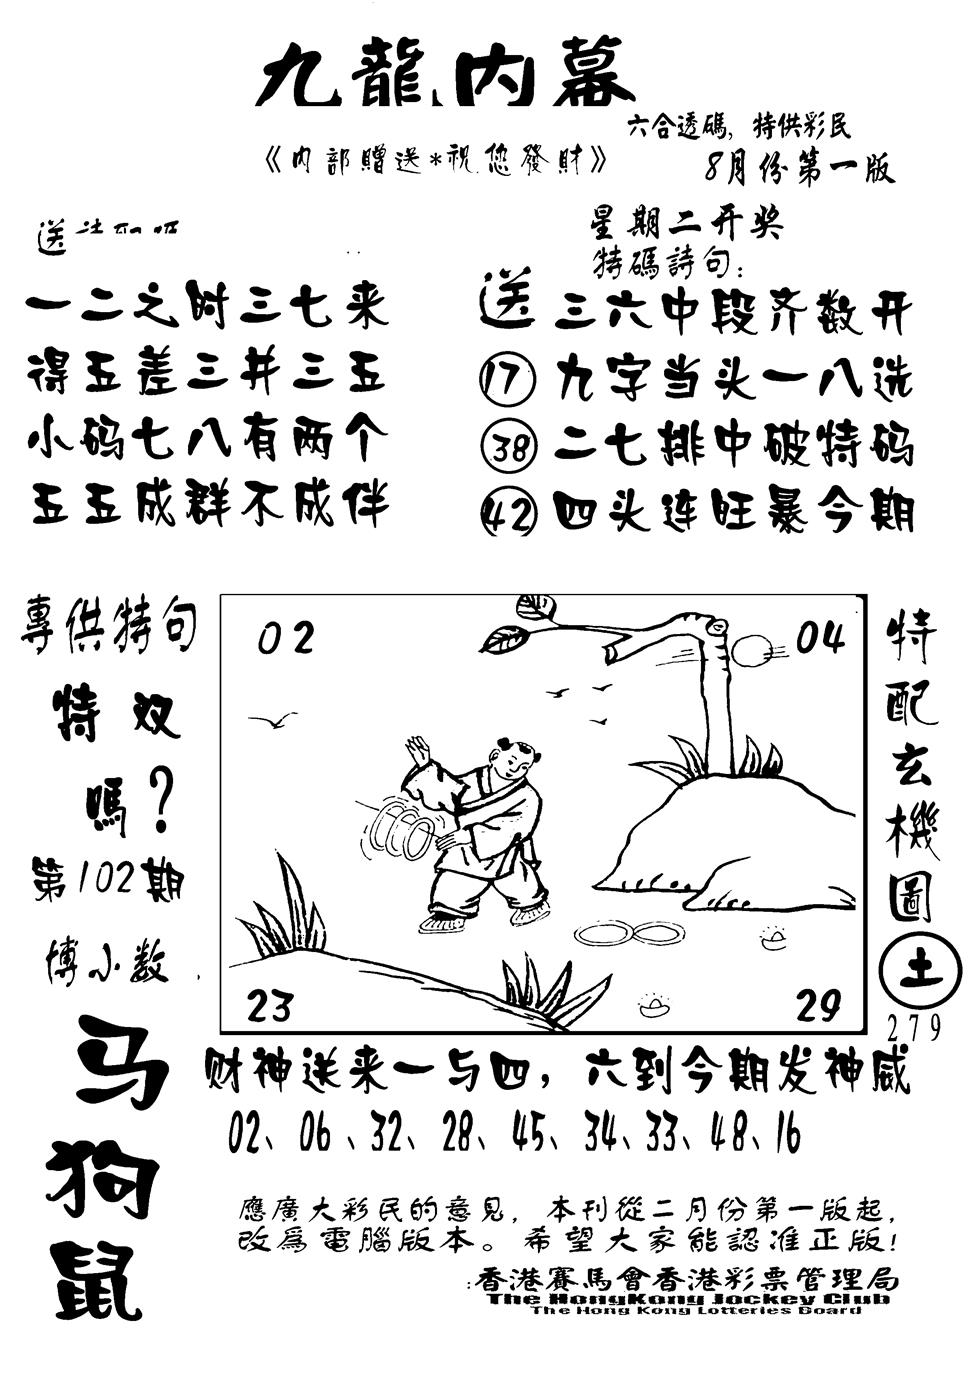 九龍内幕
六合透碼，特供彩民
《内部贈送*祝您發財》
8月份第一版
星期二开奖
特碼詩句：
送
一二之时三七来
得五差三并三五
小码七八有两个
五五成群不成伴
送 三六中段齐数开
17 九字当头一八选
38 二七排中破特码
42 四头连旺暴今期
專供特句
特双
嗎？
第102期
博小数
马
狗
鼠
02
04
23
29
特配玄機圖
土
279
财神送来一与四，六到今期发神威
02、06、32、28、45、34、33、48、16
應廣大彩民的意見，本刊從二月份第一版起，
改爲電腦版本。希望大家能認准正版！
:香港賽馬會香港彩票管理局
The HongKong Jockey Club
The Hong Kong Lotteries Board